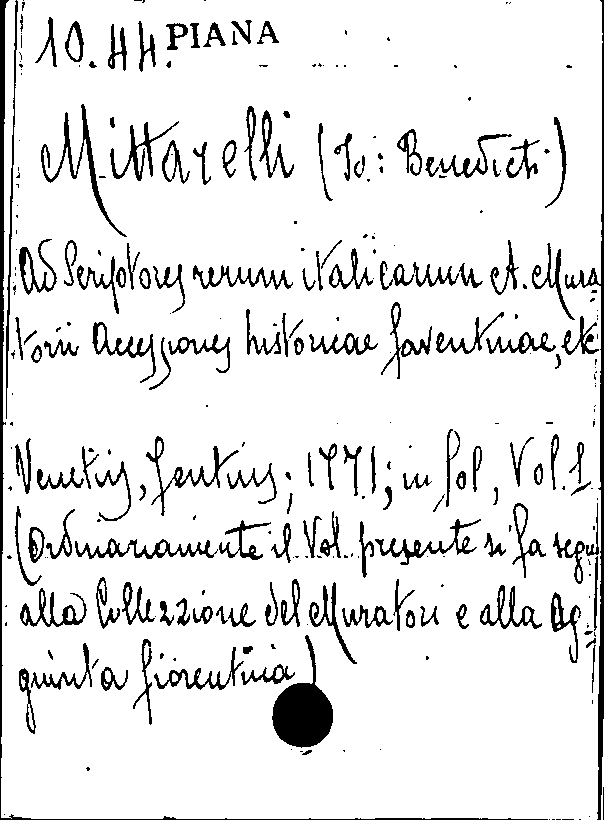 10.44. PIANA
Mittarelli (Jo: Benedicti)
Ad Scriptores rerum italicarum A. Mura=
torii Accessiones historicae faventinae, etc
Venetiis, Fentius; 1771; in fol, Vol. 1
(Ordinariamente il Vol. presente si fa segu
alla Collezzione del Muratori e alla Ag=
giunta fiorentina)